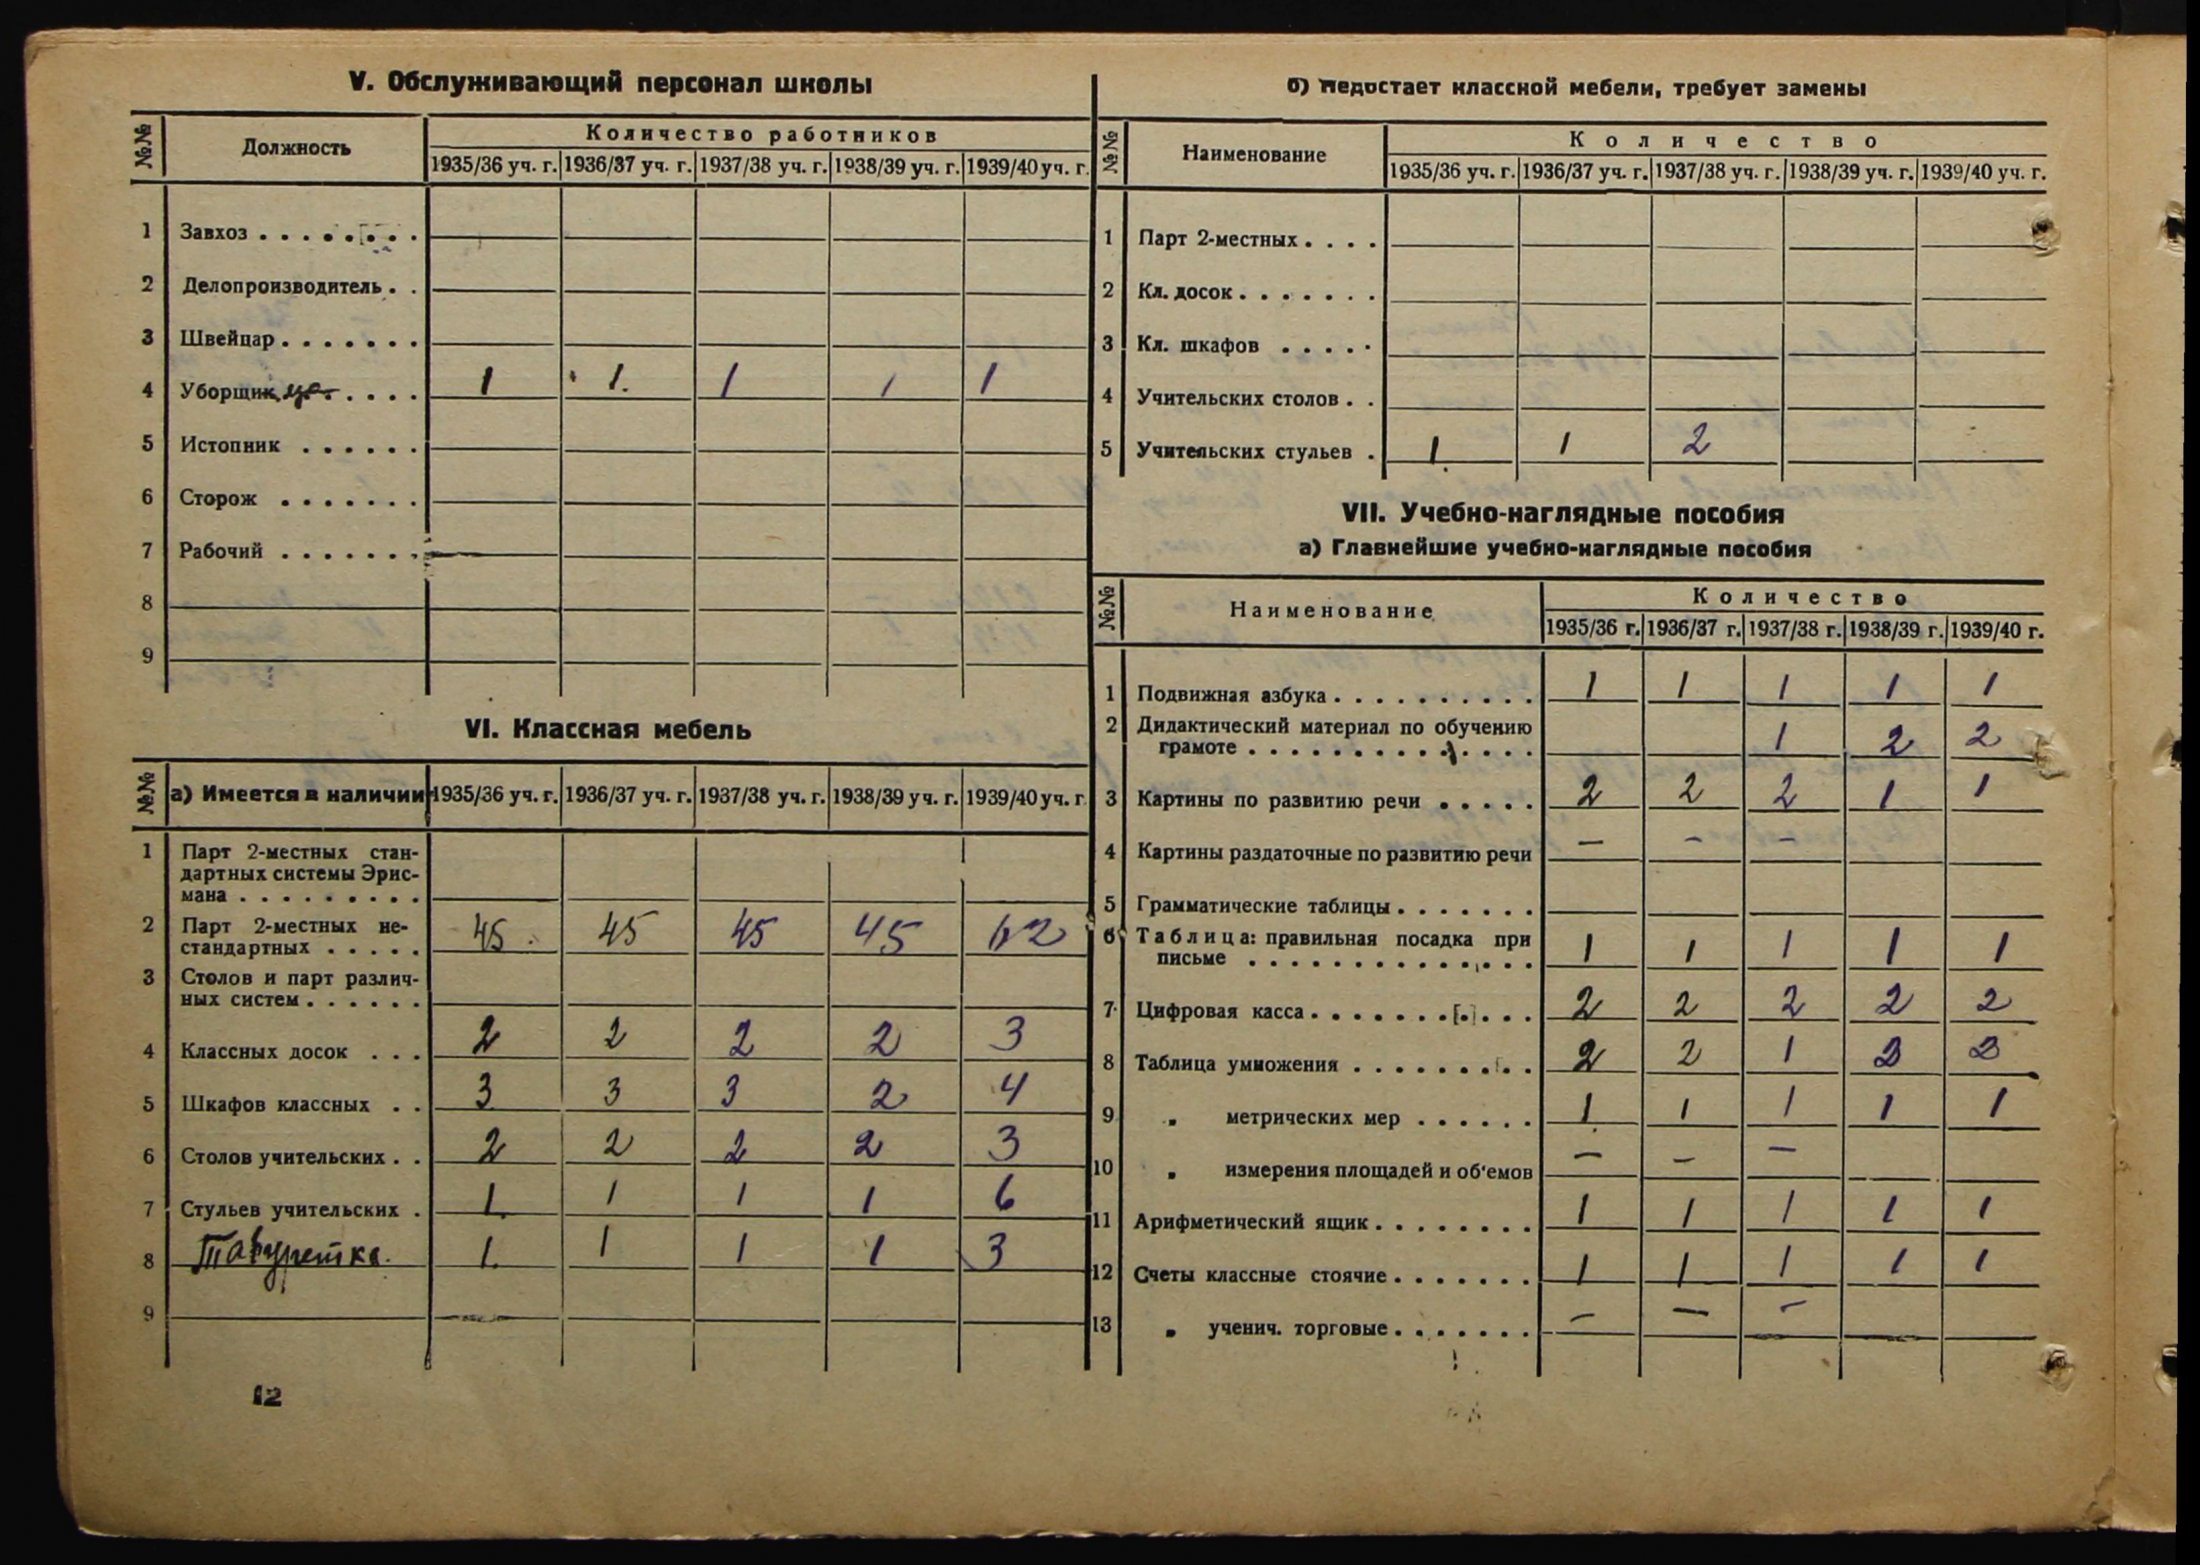 V. Обслуживающий персонал школы
№№ Должность Количество работников
1935/36 уч. г. 1936/37 уч. г. 1937/38 уч. г. 1938/39 уч. г. 1939/40 уч. г.
1 Завхоз
2 Делопроизводитель
3 Швейцар
4 Уборщик 1 1 1 1 1
5 Истопник
6 Сторож
7 Рабочий
8
9
VI. Классная мебель
№№ а) Имеется в наличии 1935/36 уч. г. 1936/37 уч. г. 1937/38 уч. г. 1938/39 уч. г. 1939/40 уч. г
1 Парт 2-местных стан-
дартных системы Эрис-
мана
2 Парт 2-местных не-
стандартных 45 45 45 45 62
3 Столов и парт различ-
ных систем
4 Классных досок 2 2 2 2 3
5 Шкафов классных 3 3 3 2 4
6 Столов учительских 2 2 2 2 3
7 Стульев учительских 1 1 1 1 6
8 Табуретка. 1 1 1 1 3
9
12
б) Недостает классной мебели, требует замены
№№ Наименование Количество
1935/36 уч. г. 1936/37 уч. г. 1937/38 уч. г. 1938/39 уч. г. 1939/40 уч. г.
1 Парт 2-местных
2 Кл. досок
3 Кл. шкафов
4 Учительских столов
5 Учительских стульев 1 1 2
VII. Учебно-наглядные пособия
а) Главнейшие учебно-наглядные пособия
№№ Наименование Количество
1935/36 г. 1936/37 г. 1937/38 г. 1938/39 г. 1939/40 г.
1 Подвижная азбука 1 1 1 1 1
2 Дидактический материал по обучению
грамоте 1 2 2
3 Картины по развитию речи 2 2 2 1 1
4 Картины раздаточные по развитию речи — — —
5 Грамматические таблицы
6 Таблица: правильная посадка при
письме 1 1 1 1 1
7 Цифровая касса 2 2 2 2 2
8 Таблица умножения 2 2 1 2 2
9 „ метрических мер 1 1 1 1 1
10 „ измерения площадей и об'емов — — —
11 Арифметический ящик 1 1 1 1 1
12 Счеты классные стоячие 1 1 1 1 1
13 „ ученич. торговые — — —